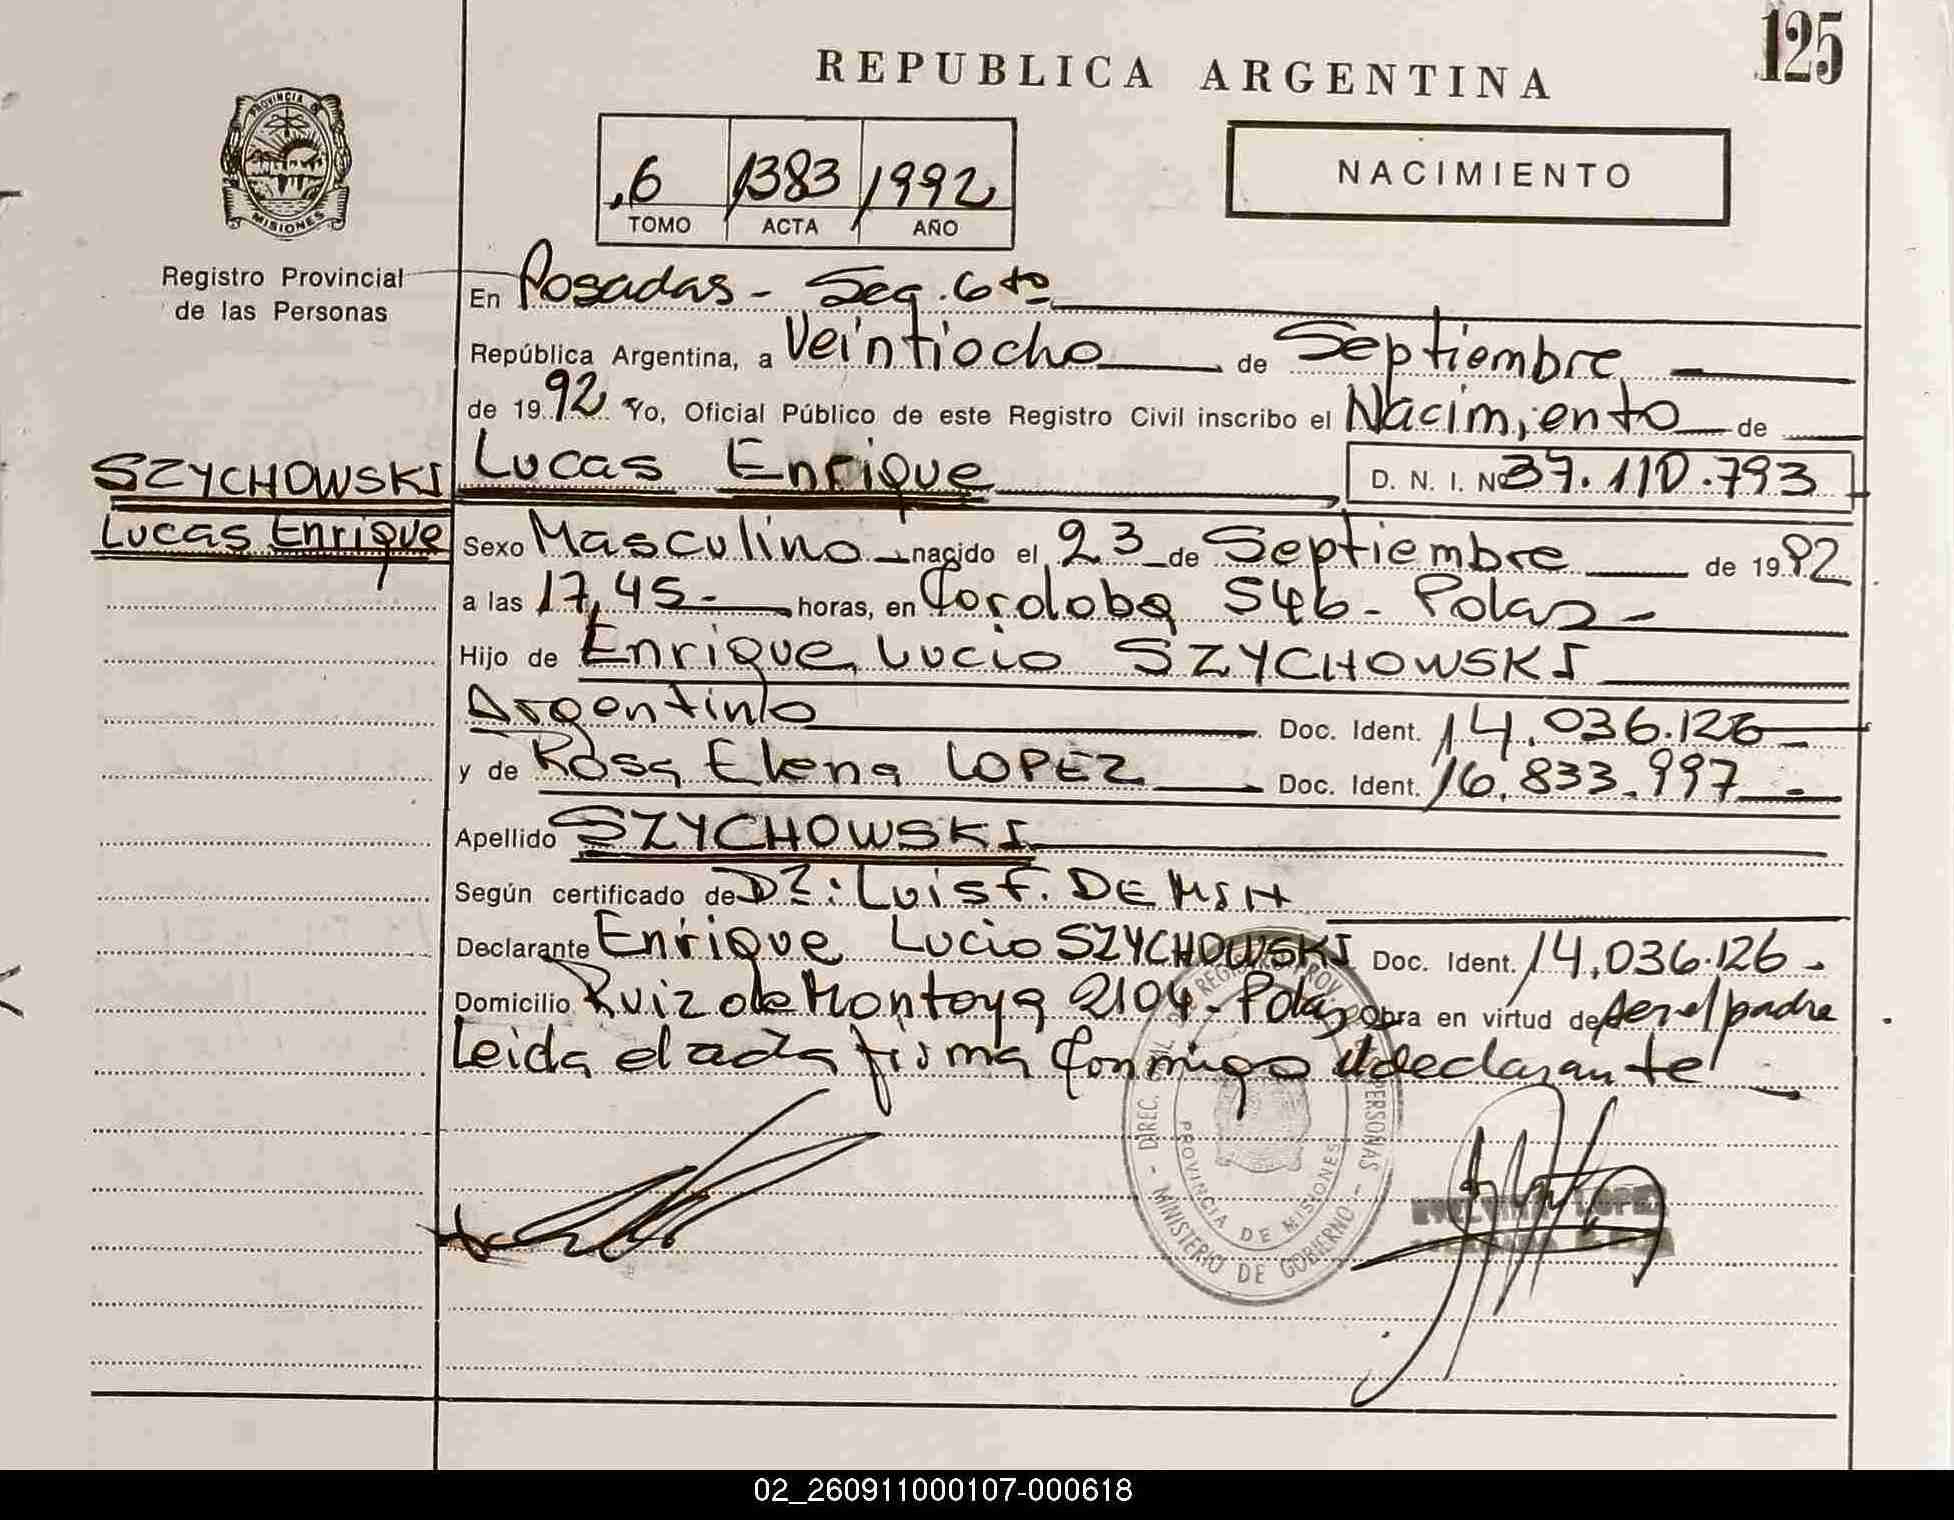 125
REPUBLICA ARGENTINA
PROVINCIA DE
MISIONES
6 1383 1992
TOMO ACTA AÑO
NACIMIENTO
Registro Provincial
de las Personas
En Posadas - Secc. 6ta
República Argentina, a Veintiocho de Septiembre
de 1992 Yo, Oficial Público de este Registro Civil inscribo el Nacimiento de
SZYCHOWSKI
Lucas Enrique
Lucas Enrique D. N. I. Nº 37.110.793
Sexo Masculino nacido el 23 de Septiembre de 1992
a las 17,45 - horas, en Cordoba 546 - Pdas -
Hijo de Enrique Lucio SZYCHOWSKI
Argentino Doc. Ident. 14.036.126 -
y de Rosa Elena LOPEZ Doc. Ident. 16.833.997 -
Apellido SZYCHOWSKI
Según certificado de Dr: Luis F.
Declarante Enrique Lucio SZYCHOWSKI Doc. Ident. 14.036.126 -
Domicilio Ruiz de Montoya 2104 - Pdas Obra en virtud de ser el padre
Leida el acta firma conmigo el declarante
DIREC. REG. PROV. PERSONAS
PROVINCIA DE MISIONES
- MINISTERIO DE GOBIERNO -
LOPEZ
02_260911000107-000618